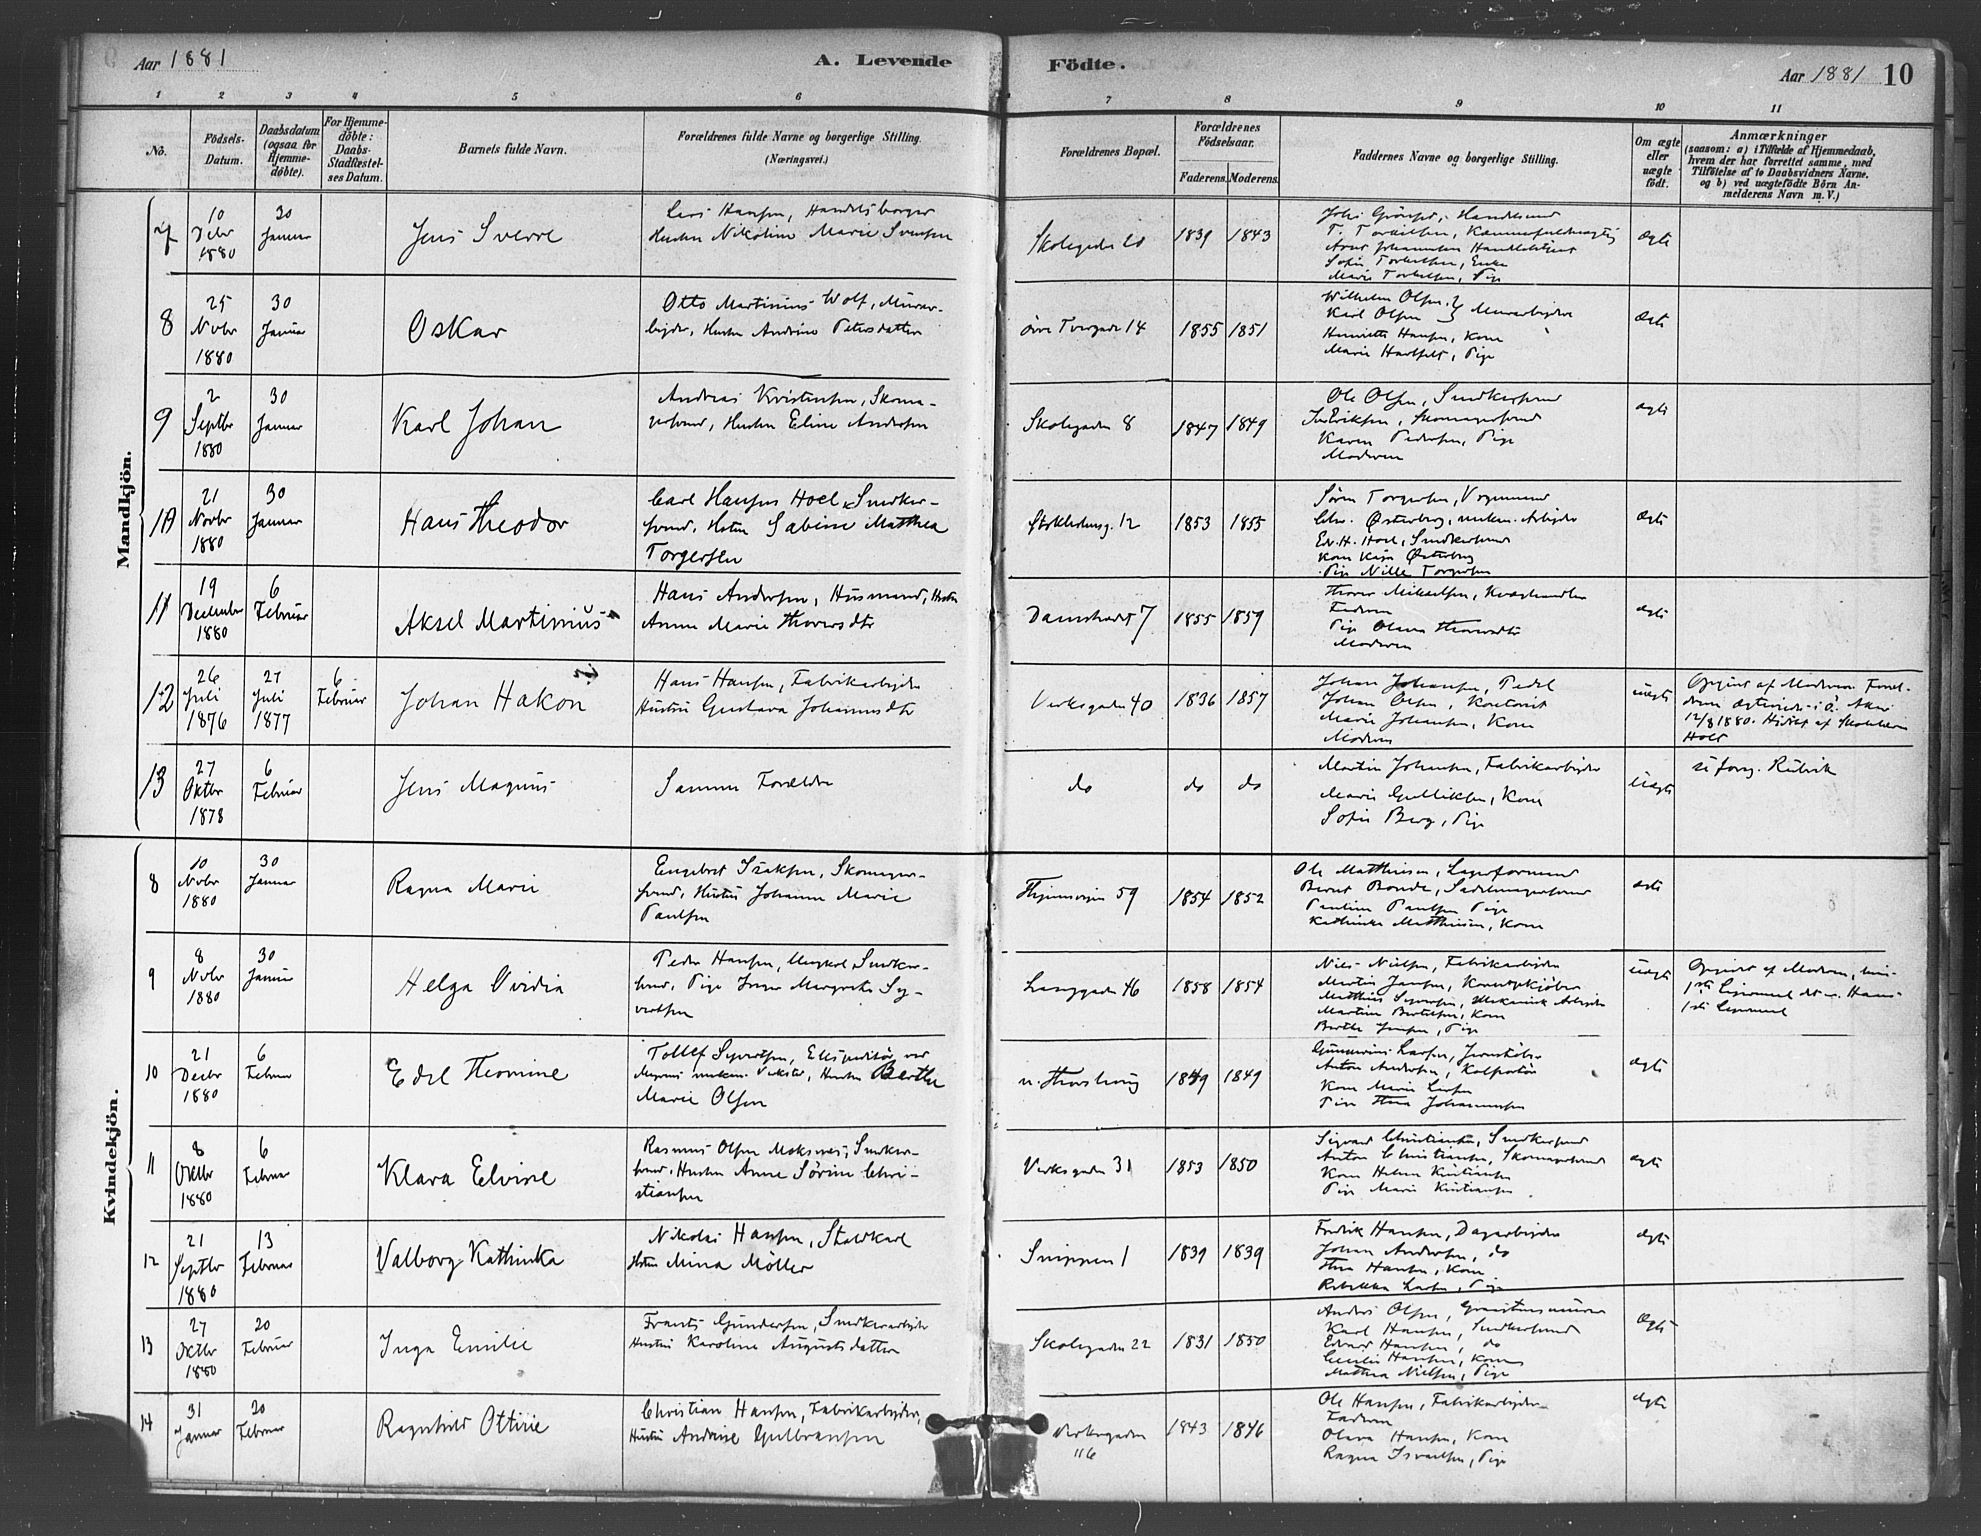 Aar 1881
A. Levende
Födte.
Aar 1881 10
1 2 3 4 5 6 7 8 9 10 11
No.
Födsels-
Datum.
Daabsdatum
(ogsaa for
Hjemme-
döbte).
For Hjemme-
döbte:
Daabs-
Stadfæstel-
ses Datum.
Barnets fulde Navn.
Forældrenes fulde Navne og borgerlige Stilling.
(Næringsvei.)
Forældrenes Bopæl.
Forældrenes
Födselsaar.
Faderens. Moderens.
Faddernes Navne og borgerlige Stilling.
Om ægte
eller
uægte
födt.
Anmærkninger
(saasom: a) i Tilfælde af Hjemmedaab,
hvem der har forrettet samme, med
Tilföielse af to Daabsvidners Navne,
og b) ved uægtefödte Börn An-
melderens Navn m. V.)
Mandkjön.
7
10
Debr
1880
30
Januar
Jens Sverre
Lars Hansen, Handelsborger
Hustru Nikoline Marie Svensen
Skolegaden 20
1839 1843
Handelsmand
Sofie Torkelsen, Enke
Marie Torkelsen, Pige
ægte
8
25
Novbr
1880
30
Januar
Oskar
Otto Martinius Wolf, Murar-
beider, Hustru Andrine Petersdatter
øvre Tvergade 14
1855 1851
Wilhelm Olsen
Karl Olsen } Murarbeider
Henriette Hansen, Kone
Marie Hartfelt, Pige
ægte
9
2
Septbr
1880
30
Januar
Karl Johan
Andreas Kristensen, Skoma-
gersvend, Hustru Eline Andersen
Skolegaden 8
1847 1849
Ole Olsen, Snedkersvend
Skomagersvend
Karen Pedersen, Pige
Moderen
ægte
10
21
Novbr
1880
30
Januar
Hans Theodor
Carl Hansen Hoel, Snedker-
svend, Hustru Sabine Mathea
Torgersen
12
1853 1855
Søren Torgersen, Vognmand
Chr. Østerberg, mekan. Arbeider
Edv. H. Hoel, Snedkersvend
Kone Kaja Østerberg
Pige Nille Torgersen
ægte
11
19
December
1880
6
Februar
Aksel Martinius
Hans Andersen, Husmand, Hustru
Anne Marie Thorersdtr
Damstredet 7
1855 1859
Thorer Mikaelsen, Kvæghandler
Faderen
Pige Olava Thorersdtr
Moderen
ægte
12
26
Juli
1876
27
Juli
1877
6
Februar
Johan Hakon
Hans Hansen, Fabrikarbeider
Hustru Gustava Johannesdtr
Verksgaden 40
1836 1857
Johan Johansen, Pedel
Johan Olsen, Kontorist
Marie Johansen, Kone
Moderen
uægte
Opgivet af Moderen. Forel-
drene ægteviede i Ø. Aker
12/8 1880. Hjdöbt af Skolelærer
Holt
13
27
Oktbr
1878
6
Februar
Jens Magnus
Samme Forældre
do
do
do
Martin Johansen, Fabrikarbeider
Marie Gulliksen, Kone
Sofie Berg, Pige
Uægte
se forrg. Rubrik
Kvindekjön.
8
10
Novbr
1880
30
Januar
Ragna Marie
Engebret Isaksen, Skomager-
svend, Hustru Johanne Marie
Paulsen
59
1854 1852
Ole Mathisen, Lagerformand
Bernt Bonde, Sadelmagersvend
Pauline Paulsen Pige
Kathinka Mathisen, Kone
ægte
9
8
Novbr
1880
30
Januar
Helga Ovidia
Peder Hansen, Ungkarl, Snedker-
svend, Pige Inger Margrethe Sy-
vertsen
Langgaden 46
1858 1854
Nils Nielsen, Fabrikarbeider
Martin Jansen,
Mathias Syversen, Mekanisk Arbeider
Martine Bertelsen, Kone
Berthe Jensen, Pige
uægte
Opgivet af Moderen,
1ste Leiermaal
1ste Leiermaal
10
21
Decbr
1880
6
Februar
Edel Thomine
Tollef Syvertsen, Expeditør ved
Myrens mekan. Verksted, Hustru Berthe
Marie Olsen
n. Thorshaug
1849 1849
Gunerius Larsen,
Anton Andersen, Kolportør
Kone Marie Larsen
Pige Thea Johannesen
ægte
11
8
Oktbr
1880
6
Februar
Klara Elvine
Rasmus Olsen Moksnes, Snedker-
svend, Hustru Anne Sørine Chri-
stiansen
Verksgaden 31
1853 1850
Sigvard Christiansen, Snedkersvend
Anton Christiansen, Skomagersvend
Kone Helene Kristiansen
Pige Marie Kristiansen
ægte
12
21
Septbr
1880
13
Februar
Valborg Kathinka
Nikolai Hansen, Staldkarl
Hustru Mina Møller
Snippen 1
1839 1839
Fredrik Hansen, Dagarbeider
Johan Andersen, do
Thea Hansen, Kone
Rebekka Larsen, Pige
ægte
13
27
Oktbr
1880
20
Februar
Inga Emilie
Frants Gundersen, Snedkerarbeider
Hustru Karoline Augustsdatter
Skolegaden 22
1831 1850
Anders Olsen,
Karl Hansen, Snedkersvend
Edvard Hansen, do
Cecilie Hansen, Kone
Mathea Nielsen, Pige
Ægte
14
31
Januar
20
Februar
Ragnhild Ottine
Christian Hansen, Fabrikarbeider,
Hustru Andrine Gulbransen
116
1843 1846
Ole Hansen, Fabrikarbeider
Faderen
Olava Hansen, Kone
Ragna Israelsen, Pige
ægte